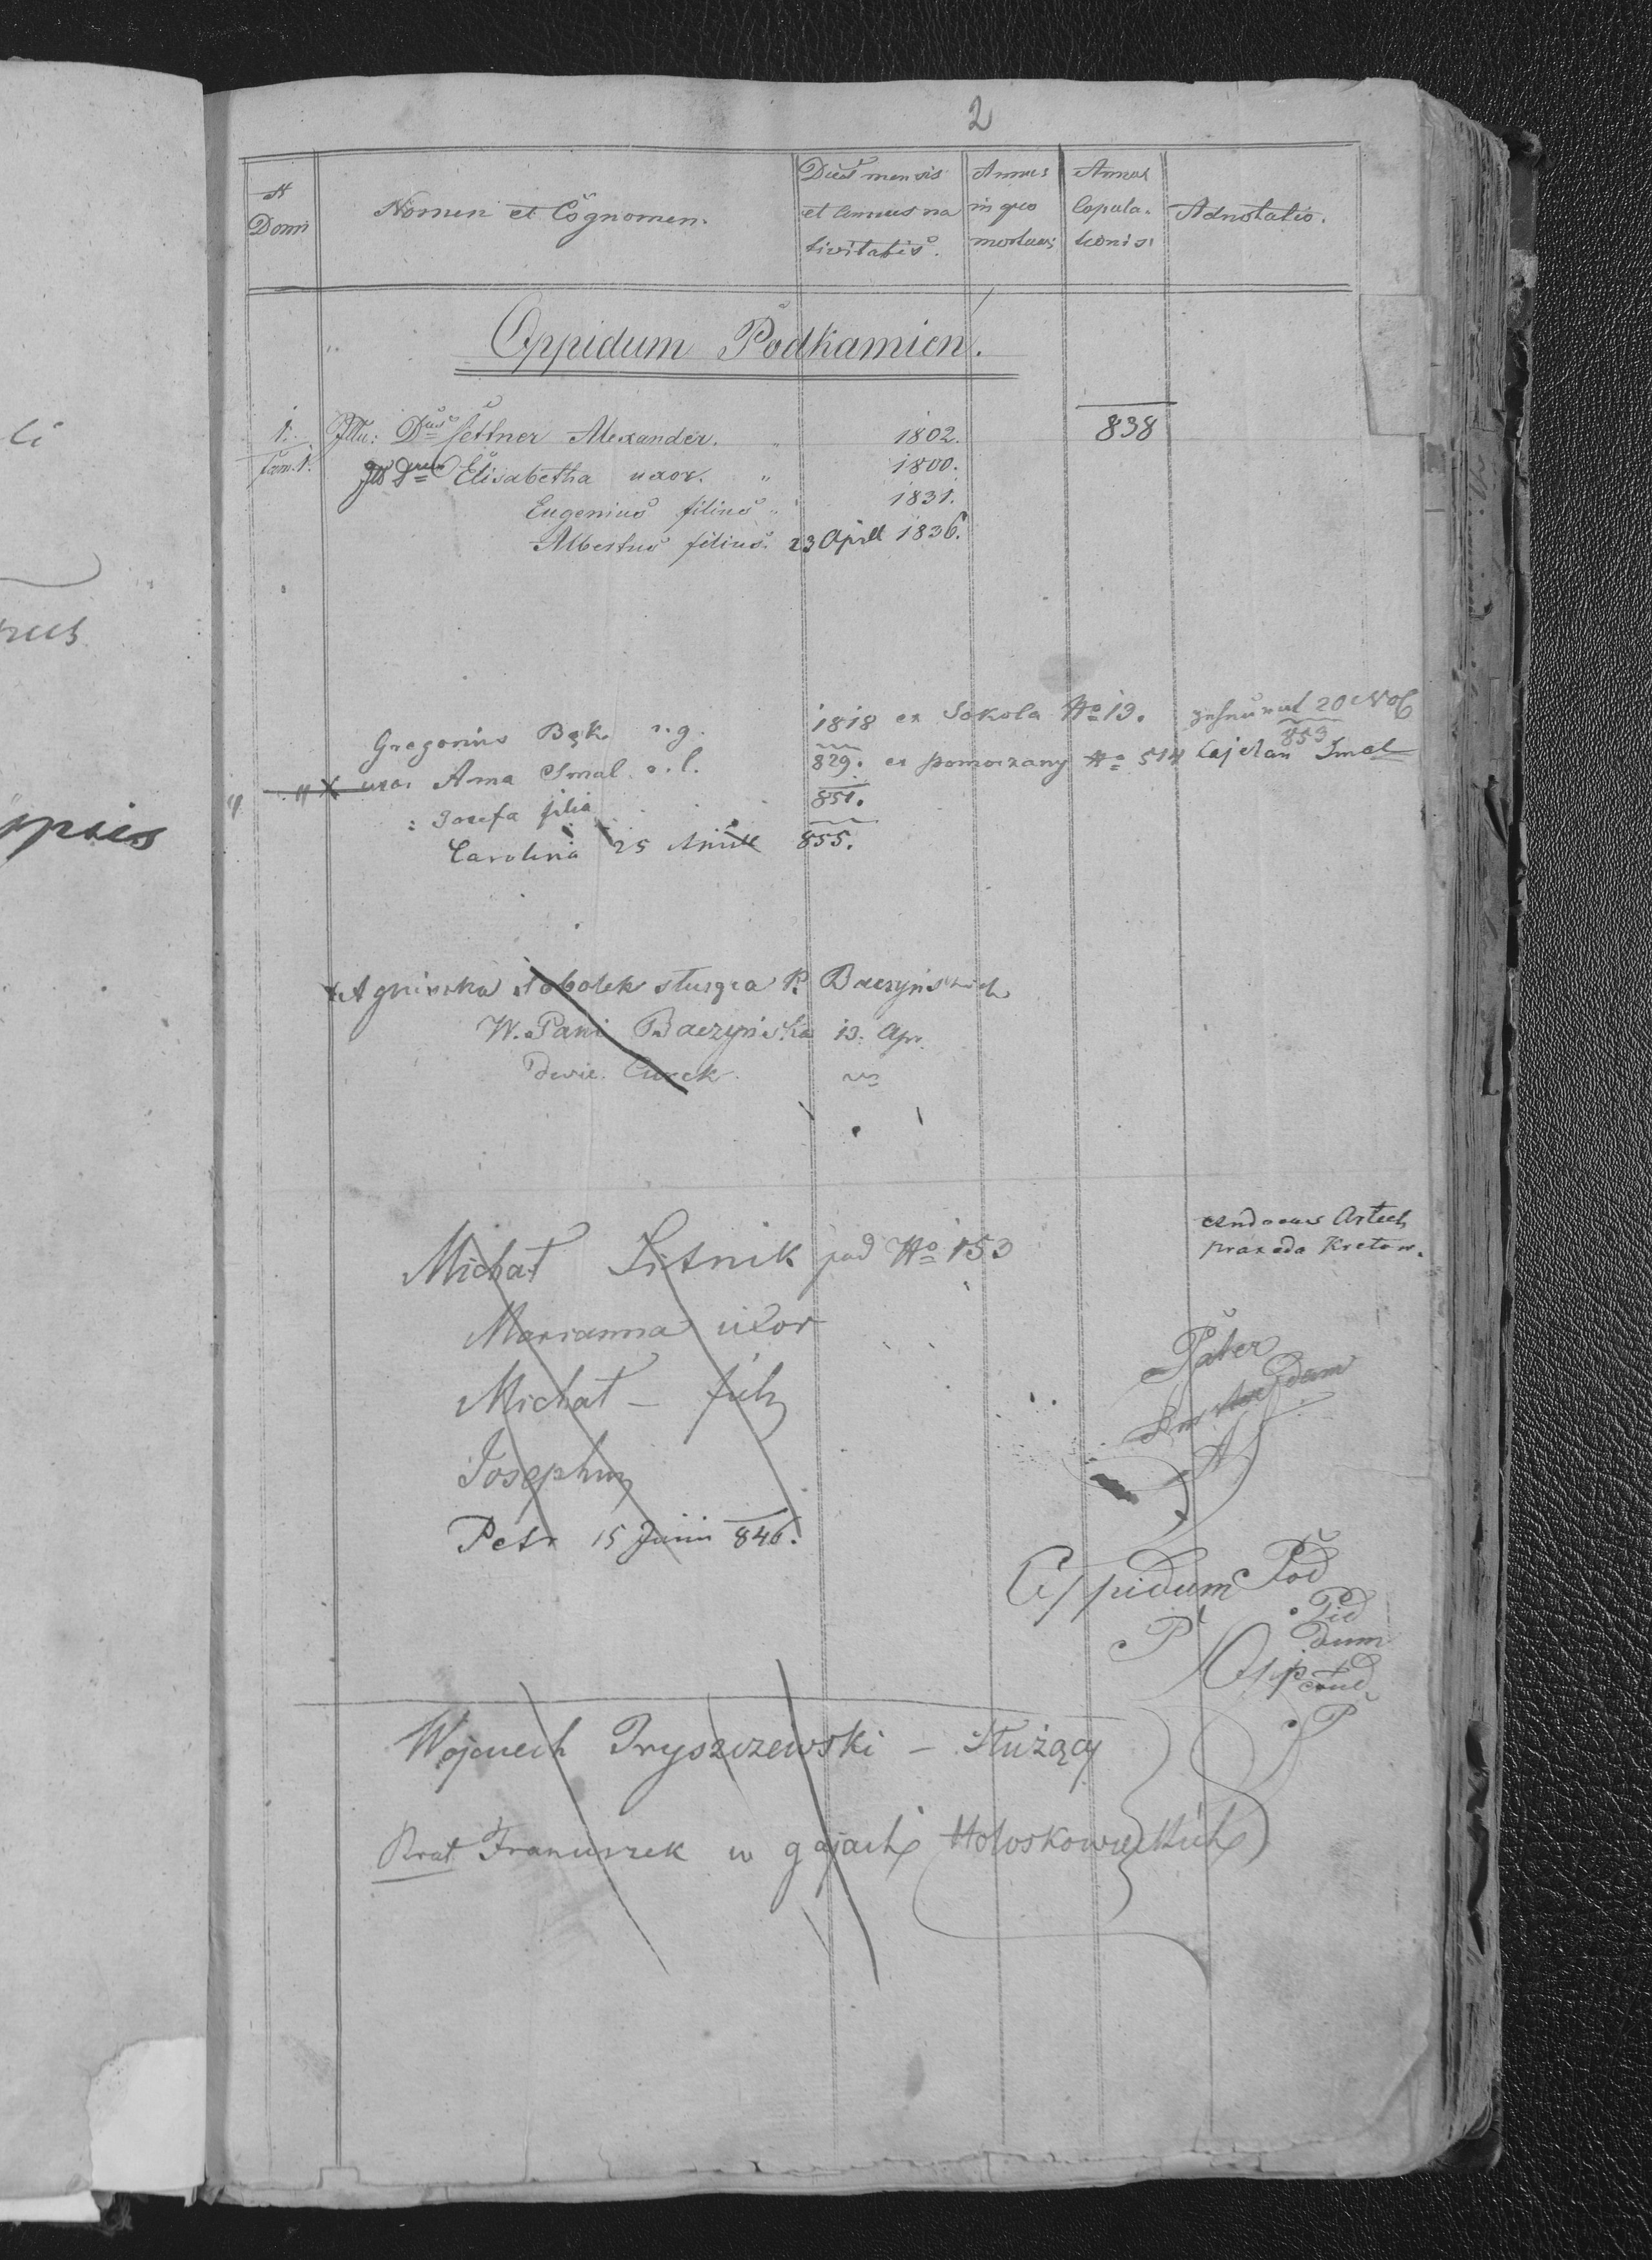 2
N Domi
Nomen et Cognomen.
Dies mensis et annus nativitatis.
Annus in quo mortuus
Annus Copulationis
Adnotatio.
Oppidum Podkamień.
1. Illu: Dnus Settner Alexander. " 1802. 838
fam. 1. Elisabetha uxor. " 1800.
Eugenius filius " 1831.
Albertus filius. 23 April 1836.
Gregorius Bąk r. g. 1818 ex Sokola No 13. 20 Nov
853
uxor Anna Smal r. l. 829. ex pomorzany No 514 Cajetan Smal
: Josefa filia 851.
Carolina 25 855.
Agniszka Sobolek sługa P. Baczyńskich
W. Pani Baczyńska 13. Apr.
Curek
Michał Sitnik pod No 153
Andreas Artech
praxeda Kretow.
Marianna uxor
Michał - fili
Josephus
Petr 15 Junii 846.
Pater
Oppidum Pod
Pid
P
dum
Opp
P
Wojciech Pryszczewski - Służący
Brat Franciszek w gajach Hołoskowieckich